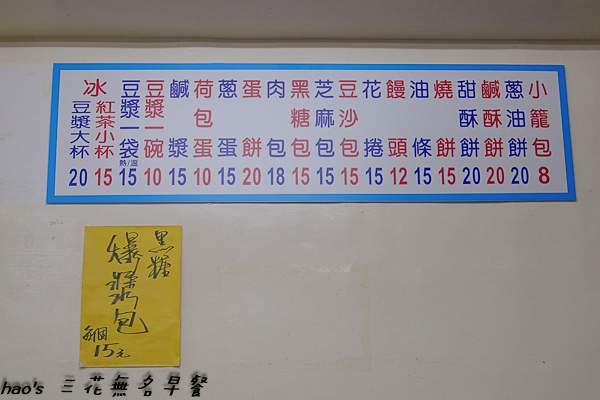 小籠包 8
蔥油餅 20
鹹酥餅 20
甜酥餅 20
燒餅 15
油條 15
饅頭 12
花捲 15
豆沙包 15
芝麻包 15
黑糖包 15
肉包 18
蛋餅 20
蔥蛋 15
荷包蛋 10
鹹漿 15
豆漿一碗 10
豆漿一袋 熱/溫 15
冰
紅茶小杯 15
豆漿大杯 20
黑糖
爆漿包
每個
15元
hao's 三花無名早餐